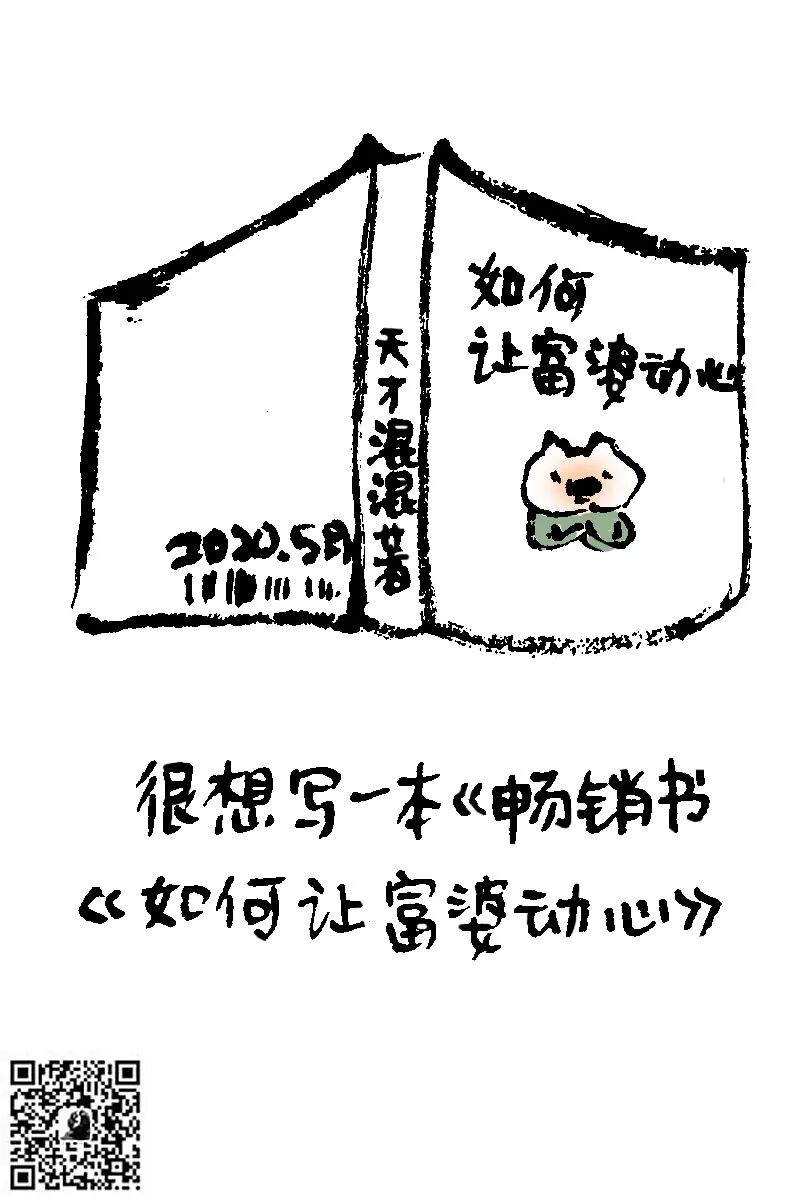 如何
让富婆动心
天才混混著
2020.5月
很想写一本《畅销书
《如何让富婆动心》